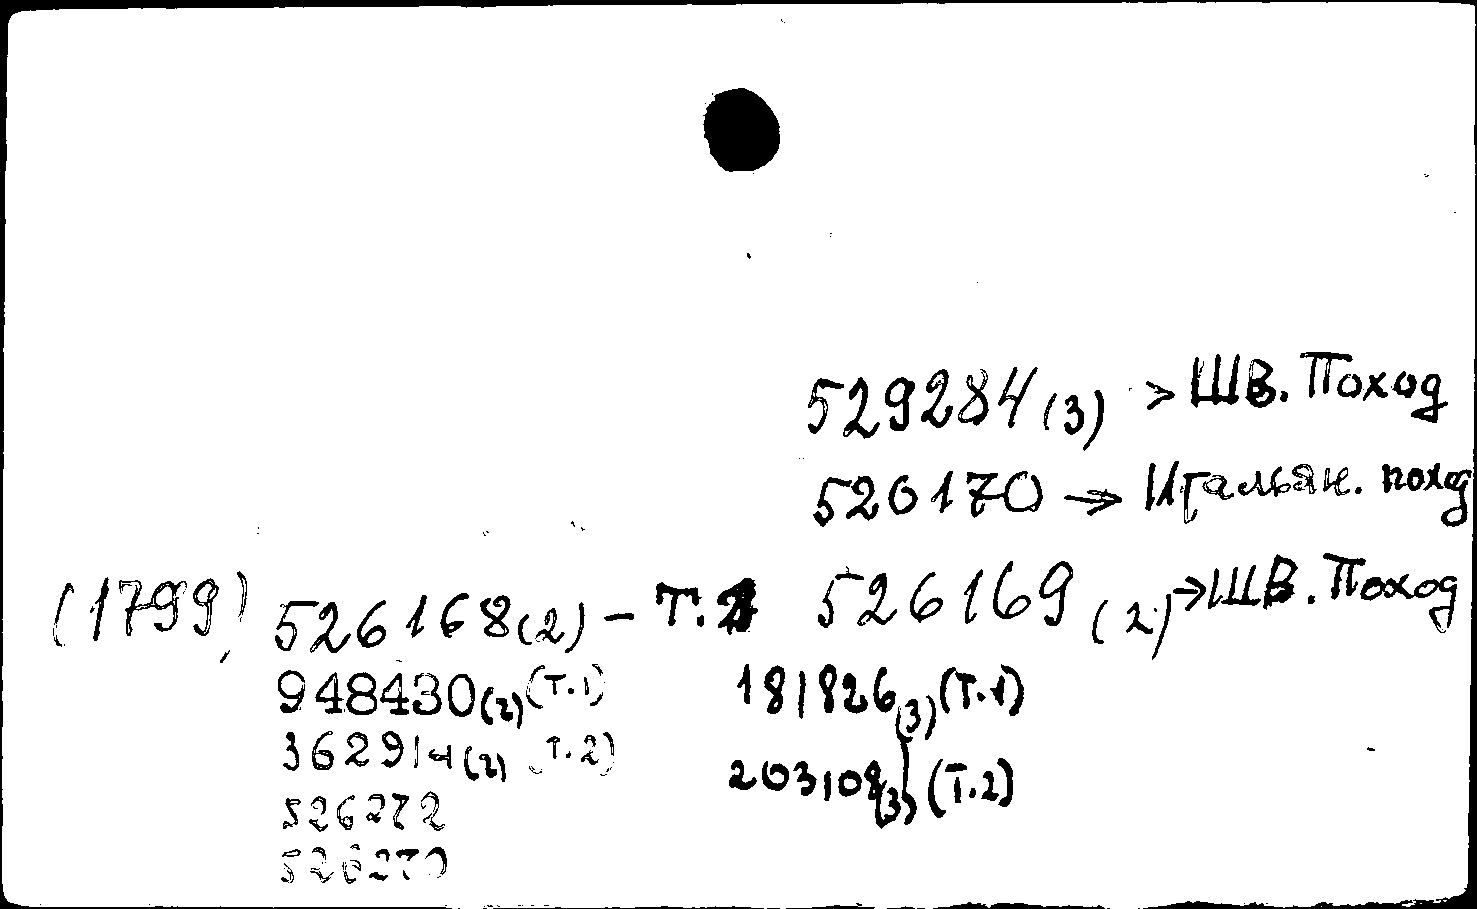 529284 (3) > Шв. Поход
526170 → Итальян. поход
(1799) 526168 (2) – Т. 526169 (2) → Шв. Поход
948430 (2) (Т.1) 181826 (3) (Т.1)
362914 (2) (Т.2) 203108 (3) (Т.2)
526272
526270